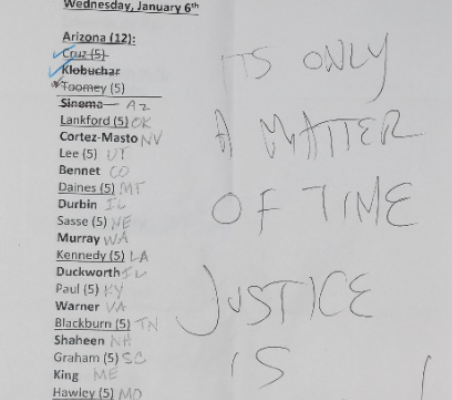 Wednesday, January 6th
Arizona (12):
Cruz (5)
Klobuchar
Toomey (5)
Sinema AZ
Lankford (5) OK
Cortez-Masto NV
Lee (5) UT
Bennet CO
Daines (5) MT
Durbin IL
Sasse (5) NE
Murray WA
Kennedy (5) LA
Duckworth IL
Paul (5) KY
Warner VA
Blackburn (5) TN
Shaheen NH
Graham (5) SC
King ME
Hawley (5) MO
ITS ONLY
A MATTER
OF TIME
JUSTICE
IS